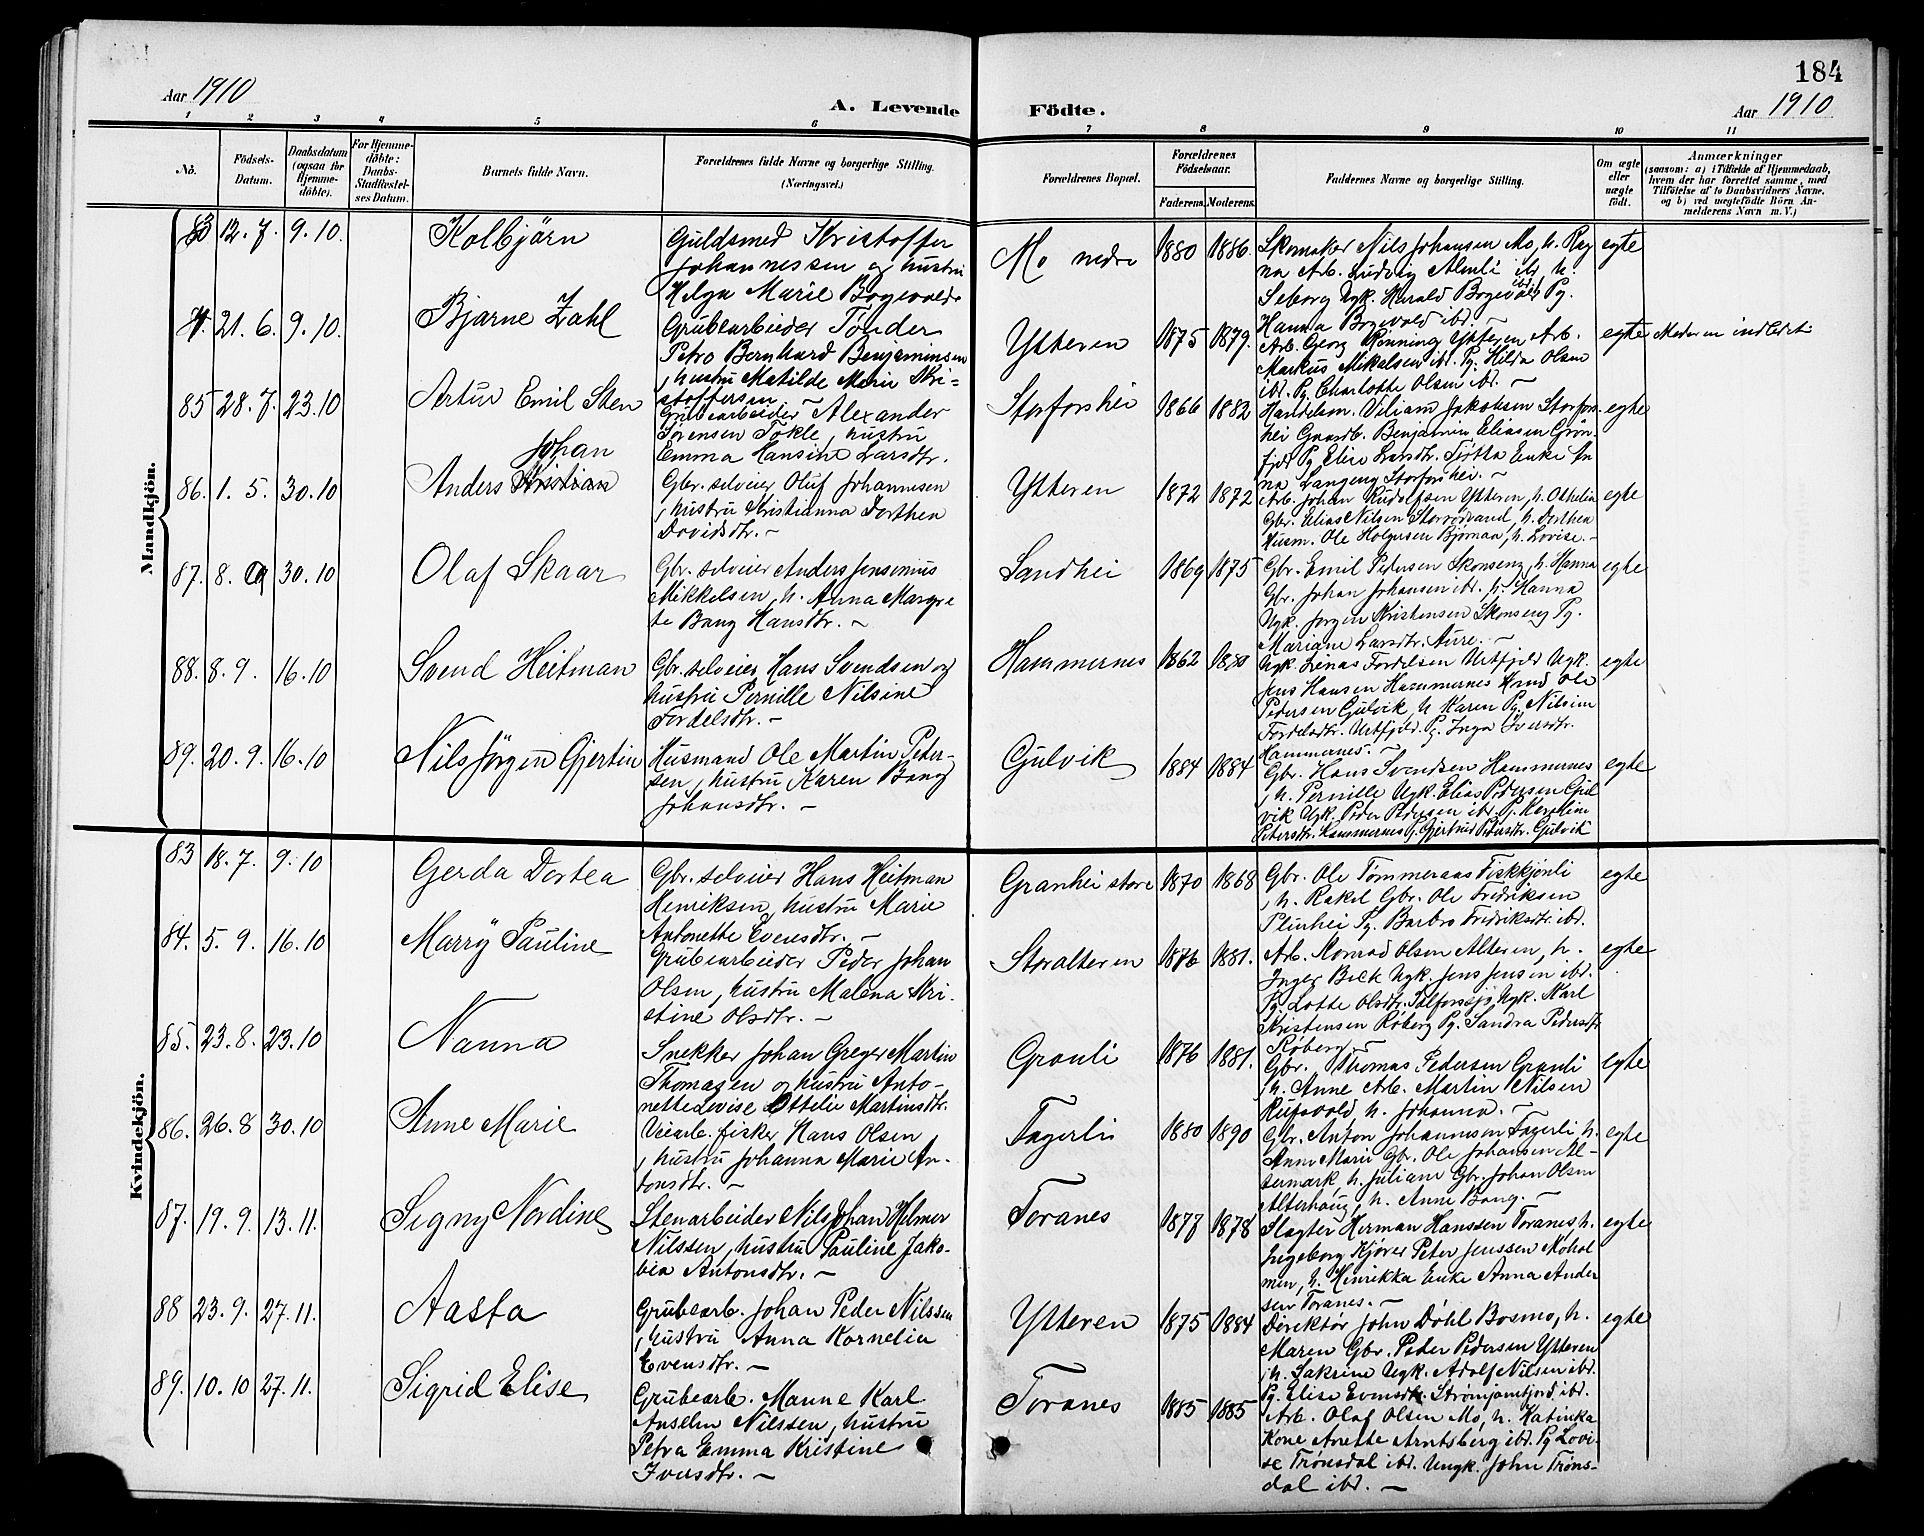 184
Aar 1910
A. Levende
Födte.
Aar 1910
1 2 3 4 5 6 7 8 9 10 11
No.
Födsels-
Datum.
Daabsdatum
(ogsaa for
Hjemme-
döbte).
For Hjemme-
döbte:
Daabs-
Stadfæstel-
ses Datum.
Barnets fulde Navn.
Forældrenes fulde Navne og borgerlige Stilling.
(Næringsvei.)
Forældrenes Bopæl.
Forældrenes
Födselsaar.
Faderens. Moderens.
Faddernes Navne og borgerlige Stilling.
Om ægte
eller
uægte
födt.
Anmærkninger
(saasom: a) i Tilfælde af Hjemmedaab,
hvem der har forrettet samme, med
Tilföielse af to Daabsvidners Navne,
og b) ved uægtefödte Börn An-
melderens Navn m. V.)
Mandkjön.
83 12. 7. 9. 10. Kolbjörn
Guldsmed Kristoffer
Johannessen og hustru
Helga Marie Bogevolds
Mo nedre 1880 1886.
Skomaker Nils Johansen Mo, h. Rag
na Arb. Ludvig Almli ibd, h.
Seborg Ugk. Harald Bogevold ibd. Pg.
Hanna Bogevold ibd. –
egte
4. 21. 6. 9. 10. Bjarne Zahl
Grubearbeider Tönder
Petro Bernhard Benjaminsen
, hustru Matilde Marie Kri=
stoffersen –
Ytteren 1875 1879.
Arb. Georg Rönning Ytteren Arb.
Markus Mikalsen ibd. Pg. Hilda Olsen
ibd. Pg. Charlotte Olsen ibd. –
egte Moderen indledet
85 28. 7. 23. 10 Artur Emil Sten
Johan
Grubearbeider Alexander
Sörensen Tokle, hustru
Emma Hansine Larsdtr.
Storforshei 1866 1882
Handelsm. Viliam Jakobsen Storfors-
hei Gaardb. Benjamin Eliasen Grön-
fjeld Pg. Elise Larsdtr. Tjötta Enke An
na Langeng Storforshei. –
egte
86. 1. 5. 30. 10 Anders Kristian
Gbr. selveier Oluf Johannesen
, hustru Kristianna Dorthea
Davidsdtr. –
Ytteren 1872 1872
Arb. Johan Rudolfsen Ytteren, h. Othelia
Gbr. Elias Nilsen Storrödvand, h. Dorthea
Husm. Ole Holgersen Bjørnaa, h. Lovise. –
egte
87. 8. 9 30. 10 Olaf Skaar
Gbr. selveier Anders Jensenius
Mikkelsen, h. Anna Margre
te Bang Hansdtr. –
Sandhei 1869 1875
Gbr. Emil Pedersen Skonseng, h. Hanna
Gbr. Johan Johansen ibd., h. Hanna
Ugk. Jørgen Kristensen Skonseng Pg.
Mariane Larsdtr. Aure. –
egte
88. 8. 9. 16. 10 Svend Heitman
Gbr. selveier Hans Svendsen og
hustru Pernille Nilsine
Fordelsdtr. –
Hammernes 1862
Ugk. Linas Fordelsen Urtfjeld Ugk.
Jens Hansen Hammernes Kmd Ole
Pedersen Gulvik h. Karen Pg. Nilsine
Fordelsdtr. Urtfjeld. Pg. Inga Iversdtr.
Hammernes. –
egte
89. 20. 9. 16. 10 Nils Jörgen Gjertin
Husmand Ole Martin Peder-
sen, hustru Karen Bang
Johansdtr. –
Gulvik 1884 1884
Gbr. Hans Svendsen Hammernes
, h. Pernille Ugk. Elias Pedersen Gul
vik Ugk. Peder Pedersen ibd. Pg. Karoline
Petersdtr. Hammernes Pg. Gjertrud Pedersdtr. Gulvik
egte
Kvindekjön.
83 18. 7. 9. 10 Gerda Dortea
Gbr. selveier Hans Heitman
Henriksen, hustru Marie
Antonette Evensdtr. –
Granhei store 1870 1868
Gbr. Ole Tømmeraas Fiskkjønli
, h. Rakel Gbr. Ole Fredriksen
Plurhei Pg. Barbro Fredriksdtr. ibd.
egte
84. 5. 9. 16. 10 Marry Pauline
Grubearbeider Peder Johan
Olsen, hustru Malena Kri-
stine Olsdtr. –
Storalteren 1876 1881.
Arb. Konrad Olsen Alteren, h.
Inger Beck Ugk. Jens Jensen ibd.
Pg. Lotte Olsdtr. Ugk. Karl
Kristensen Røberg Pg. Sandra Pedersdtr
Røberg. –
egte
85. 23. 8. 23. 10 Nanna
Snekker Johan Greger Martin
Thomasen og hustru Anto-
nette Levise Ottelie Martinsdtr.
Granli 1876 1881.
Gbr. Thomas Pedersen Granli
, h. Anne Arb. Martin Nilsen
Rufsvold h. Johanna. –
egte
86. 26. 8 30. 10 Anne Marie
Veiarb. fisker Hans Olsen
, hustru Johanna Marie An-
tonsdtr. –
Fagerli 1880 1890
Gbr. Anton Johannesen Fagerli h.
Anne Marie Gbr. Ole Johansen Al-
termark h. Juliane Gbr. Johan Olsen
Alterhaug, h. Anne Bang. –
egte
87. 19. 9. 13. 11. Signy Nordine
Stenarbeider Nils Johan Helmer
Nilssen, hustru Pauline Jako-
bea Antonsdtr. –
Toranes 1877 1878
Slagter Herman Hanssen Toranes h.
Ingeborg Kjører Peter Jenssen Mohol
men, h. Henrikka Enke Anna Ander
sen Toranes. –
egte
88 23. 9. 27. 11. Aasta
Grubearb. Johan Peder Nilssen
, hustru Anna Kornelia
Evensdtr. –
Ytteren 1875 1884
Direktør John Döhl Bosmo, h.
Maren Gbr. Peder Pedersen Ytteren
, h. Sakrine Ugk. Adolf Nilsen ibd.
Pg. Elise Evensdtr. Strømjamtjord ibd.
egte
89. 10. 10 27. 11. Sigrid Elise
Grubearb. Manne Karl
Anselm Nilssen, hustru
Petra Emma Kristine
Iversdtr. –
Toranes 1885 1885
Arb. Olaf Olsen Mo, h. Katinka
Kone Anette Arntsberg ibd. Pg Lovi-
se Trønsdal ibd. Ungk. John Trøns-
dal ibd. –
egte